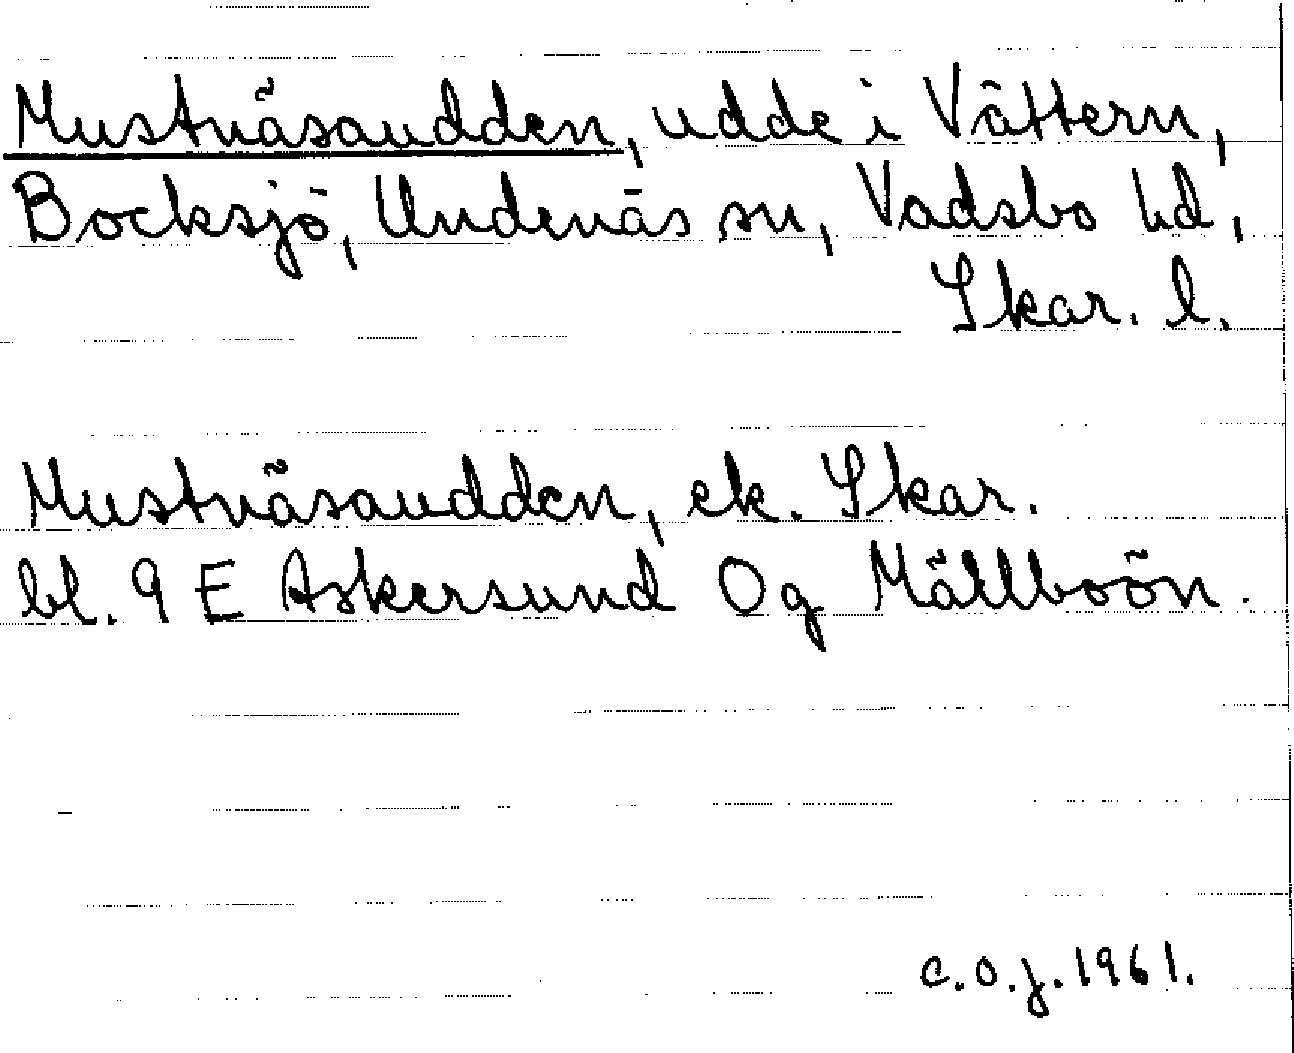 Mustnäsaudden, udde i Vättern,
Bocksjö, Undenäs sn, Vadsbo hd,
Skar. l.
Mustnäsaudden, ek. Skar.
bl. 9 E Askersund Og Mällboön.
C.O.J. 1961.